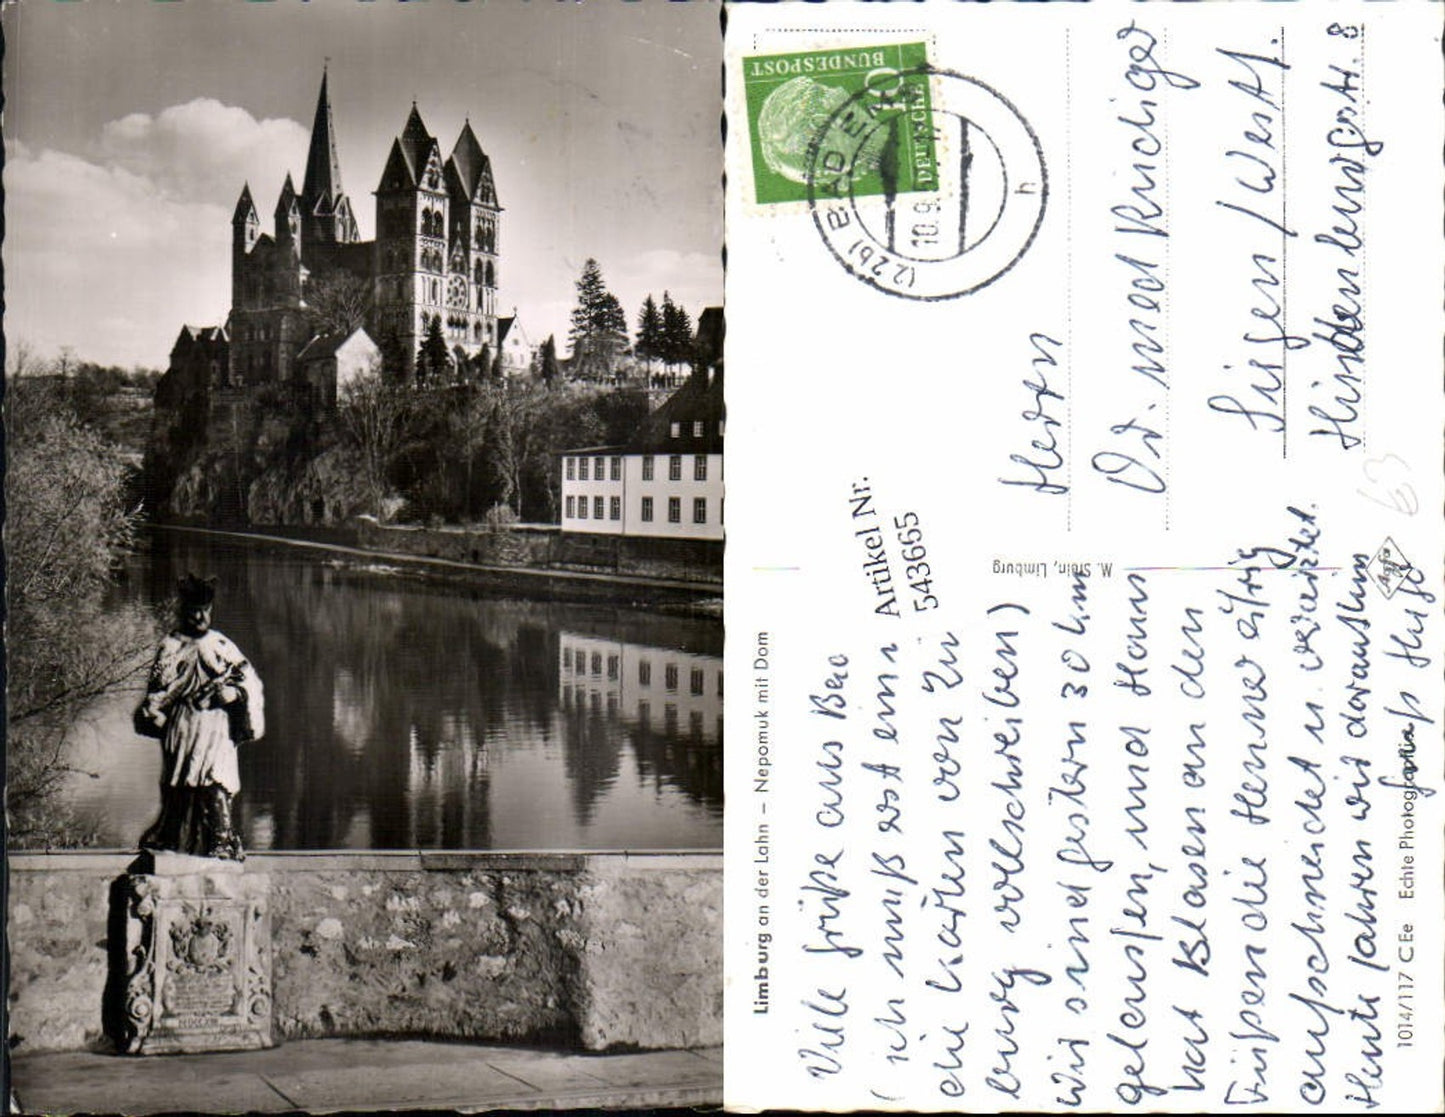 Limburg an der Lahn – Nepomuk mit Dom
Viele Grüße aus
(ich muß erst ein
die Karten von
burg vollschreiben)
wir sind gestern 30 km
gelaufen, und Hanns
hat Blasen an den
Füßen die Henner eifrig
aufschneidet u. verarztet.
Heute fahren wir
Gruß
Artikel Nr.
543655
M. Stein, Limburg
1014/117 C Ee Echte Photographie
Agfa
Herrn
Dr. med Rüdiger
Siegen/Westf.
Hindenburgstr. 8
63
DEUTSCHE
BUNDESPOST
10
(22b) BAD EMS
10.9.
h